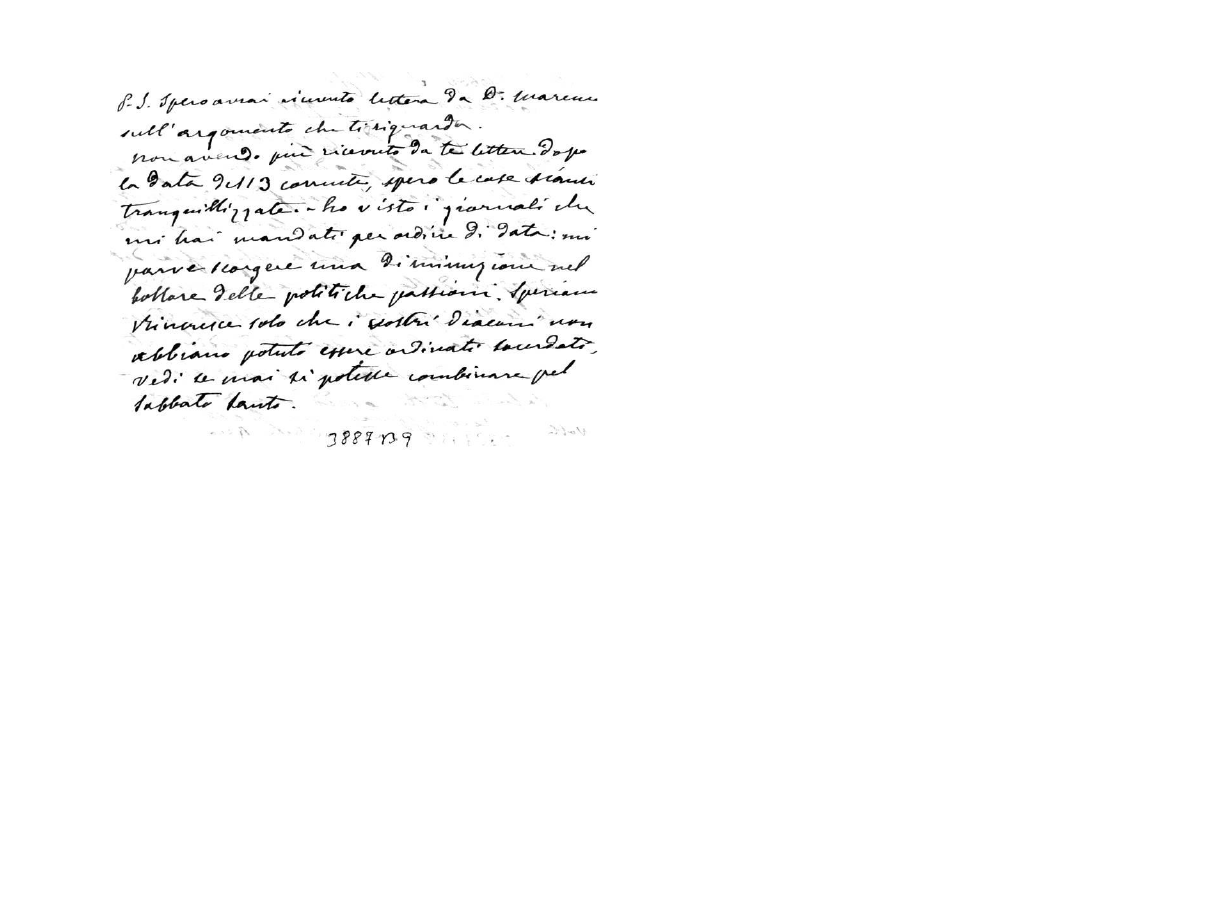 P.S. Spero avrai ricevuto lettera da D. Marenco
sull'argomento che ti riguarda.
Non avendo più ricevuto da te lettere dopo
la data del 13 corrente, spero le cose siansi
tranquillizzate. - ho visto i giornali che
mi hai mandati per ordine di data: mi
parve scorgere una diminuzione nel
bollore delle politiche passioni. Speriamo
Rincresce solo che i vostri diaconi non
abbiano potuto essere ordinati sacerdoti,
vedi se mai si potesse combinare pel
Sabbato Santo.
3887 B 9